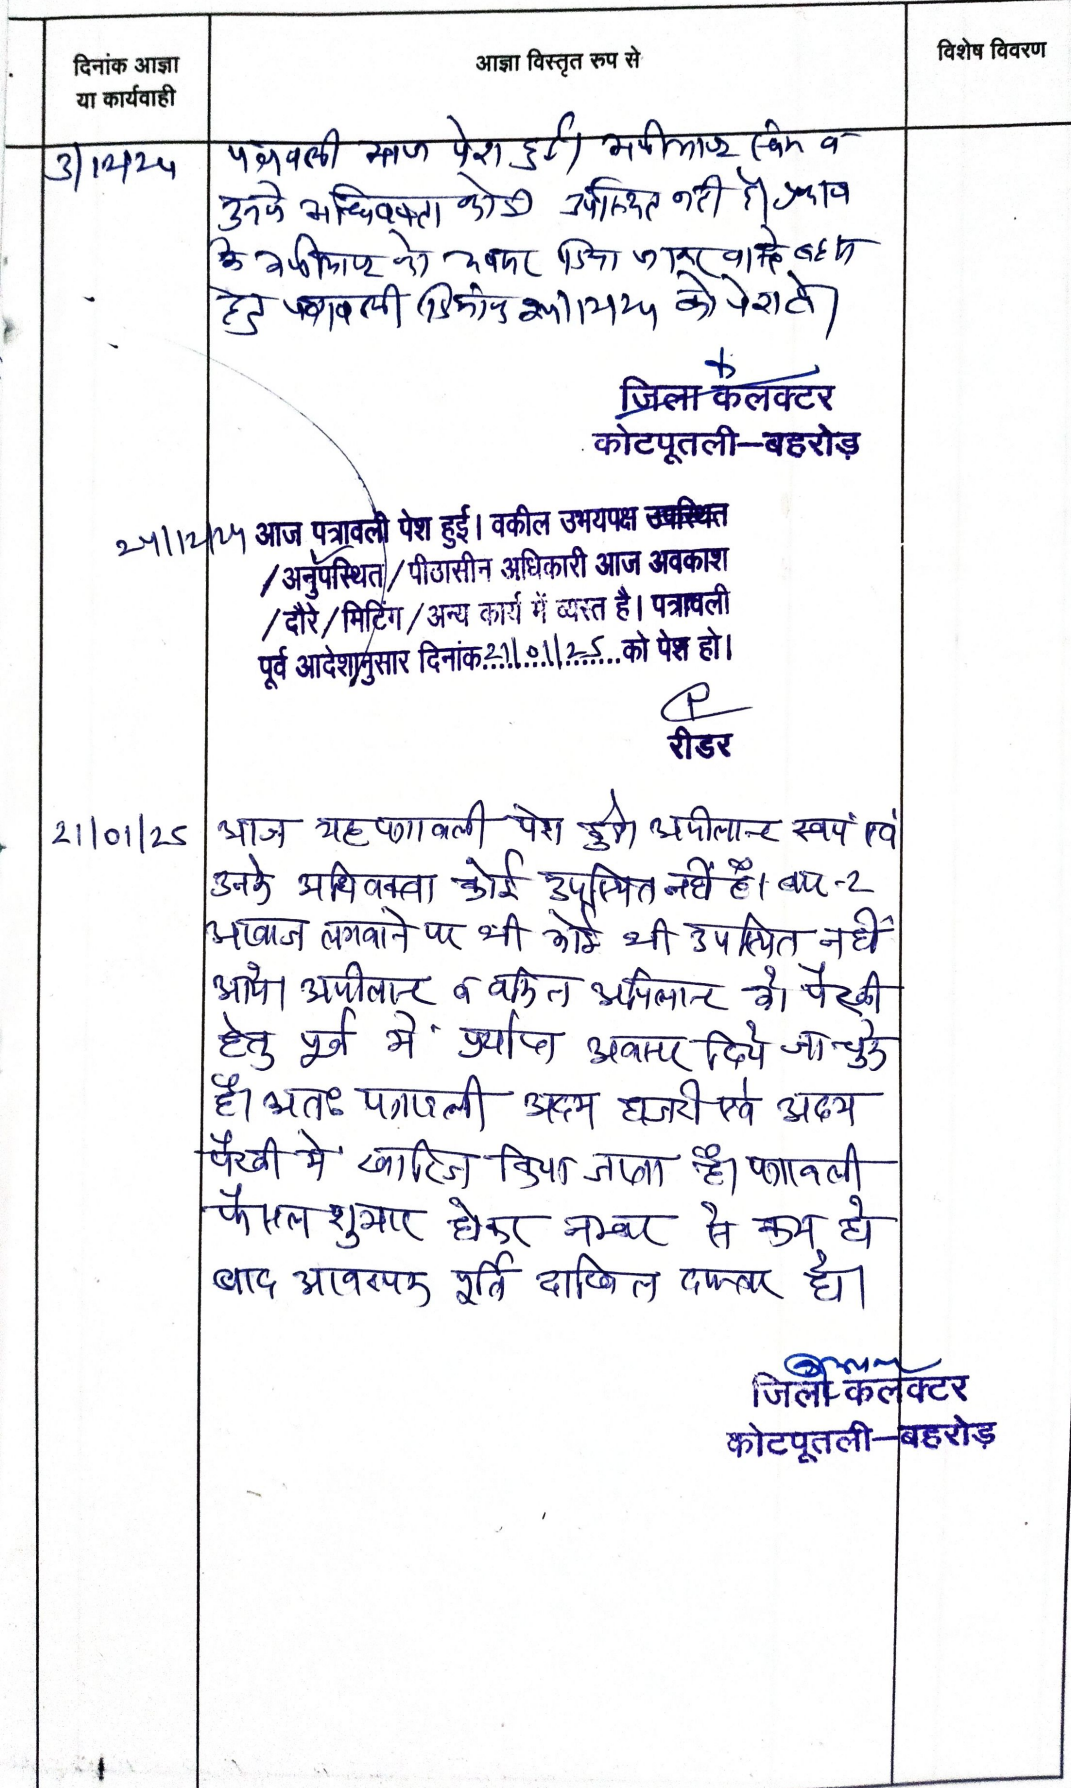 दिनांक आज्ञा
या कार्यवाही
आज्ञा विस्तृत रुप से
विशेष विवरण
3/12/24 पत्रावली आज पेश हुई। अपीलान्ट स्वयं व
उनके अधिवक्ता कोई उपस्थित नहीं है।
के अपीलान्ट को अवसर दिया जाकर वास्ते बहस
हेतु पत्रावली दिनांक 24/12/24 को पेश हो।
जिला कलक्टर
कोटपूतली–बहरोड़
24/12/24 आज पत्रावली पेश हुई। वकील उभयपक्ष उपस्थित
/अनुपस्थित/पीठासीन अधिकारी आज अवकाश
/दौरे/मिटिंग/अन्य कार्य में व्यस्त है। पत्रावली
पूर्व आदेशानुसार दिनांक 21/01/25 को पेश हो।
रीडर
21/01/25 आज यह पत्रावली पेश हुई। अपीलान्ट स्वयं एवं
उनके अधिवक्ता कोई उपस्थित नहीं है। बार-2
आवाज लगवाने पर भी कोई भी उपस्थित नहीं
आये। अपीलान्ट व वकिल अपिलान्ट को पैरवी
हेतु पूर्व में पर्याप्त अवसर दिये जा चुके
है। अतः पत्रावली अदम हाजरी एवं अदम
पैरवी में खारिज किया जाता है। पत्रावली
फैसल शुमार होकर नम्बर से कम हो
बाद आवश्यक पूर्ति दाखिल दफ्तर हो।
जिला कलक्टर
कोटपूतली–बहरोड़